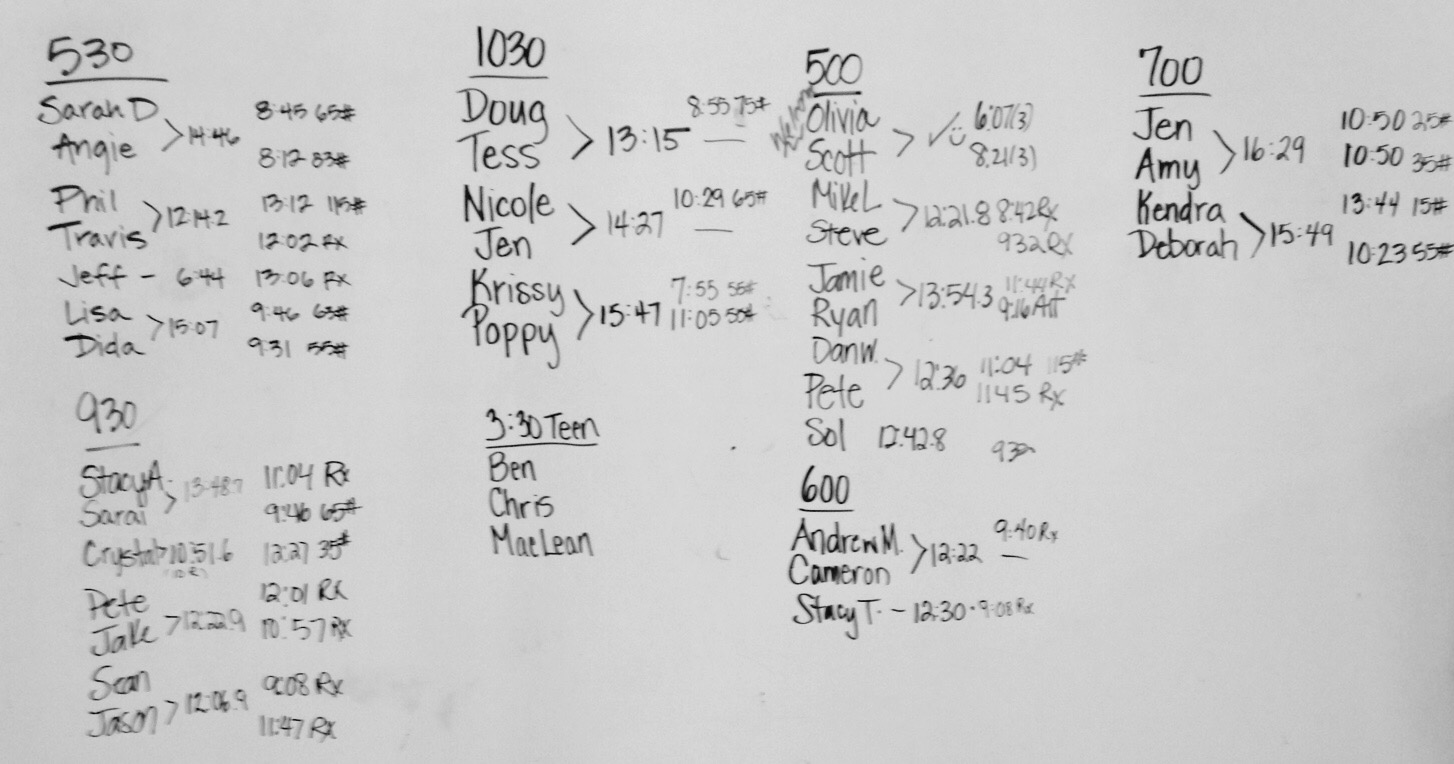 530
Sarah D 8:45 65#
> 14:46
Angie 8:12 83#
Phil 13:12 115#
> 12:14.2
Travis 12:02 RX
Jeff - 6:44 13:06 RX
Lisa 9:46 65#
> 15:07
Dida 9:31 55#
930
Stacy A. 11:04 Rx
> 13:48.7
Sarai 9:46 65#
Crystal > 10:51.6 12:27 35#
Pete 12:01 RX
> 12:22.9
Jake 10:57 RX
Sean 9:08 Rx
> 12:06.9
Jason 11:47 Rx
1030
Doug 8:55 75#
> 13:15
Tess —
Nicole 10:29 65#
> 14:27
Jen —
Krissy 7:55 55#
> 15:47
Poppy 11:05 50#
3:30 Teen
Ben
Chris
MacLean
500
Olivia 6:07(3)
> ✓
Scott 8:21(3)
Mike L 8:42 Rx
> 12:21.8
Steve 932 RX
Jamie 11:44 Rx
> 13:54.3
Ryan 9:16 Alt
Dan W. 11:04 115#
> 12:36
Pete 1145 Rx
Sol 12:42.8
600
Andrew M. 9:40 Rx
> 12:22
Cameron —
Stacy T. - 12:30 · 9:08 Rx
700
Jen 10:50 25#
> 16:29
Amy 10:50 35#
Kendra 13:44 15#
> 15:49
Deborah 10:23 55#